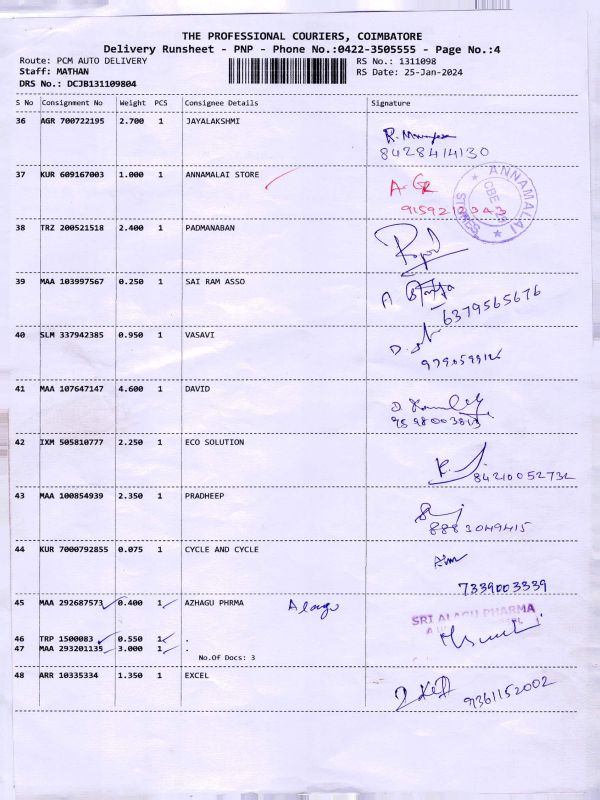 THE PROFESSIONAL COURIERS, COIMBATORE
Delivery Runsheet - PNP - Phone No.:0422-3505555 - Page No.:4
Route: PCM AUTO DELIVERY RS No.: 1311098
Staff: MATHAN RS Date: 25-Jan-2024
DRS No.: DCJB131109804
S No Consignment No Weight PCS Consignee Details Signature
36 AGR 700722195 2.700 1 JAYALAKSHMI
8428414130
37 KUR 609167003 1.000 1 ANNAMALAI STORE
ANNAMALAI STORES CBE
9159213343
38 TRZ 200521518 2.400 1 PADMANABAN
39 MAA 103997567 0.250 1 SAI RAM ASSO
6379565676
40 SLM 337942385 0.950 1 VASAVI
41 MAA 107647147 4.600 1 DAVID
42 IXM 505810777 2.250 1 ECO SOLUTION
43 MAA 100854939 2.350 1 PRADHEEP
8883049415
44 KUR 7000792855 0.075 1 CYCLE AND CYCLE
7339003339
45 MAA 292687573 0.400 1 AZHAGU PHRMA Alagu
SRI ALAGU PHARMA
46 TRP 1500083 0.550 1 .
47 MAA 293201135 3.000 1 .
No.Of Docs: 3
48 ARR 10335334 1.350 1 EXCEL
9361152002